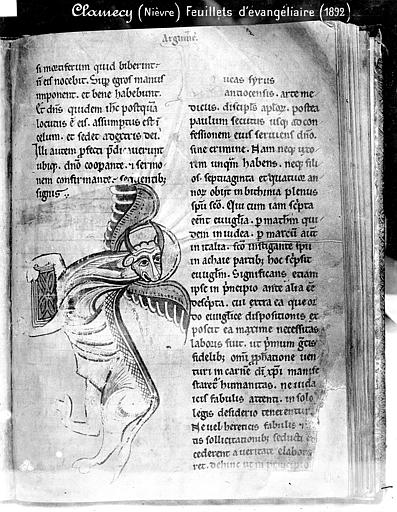 Clamecy (Nièvre) Feuillets d'évangéliaire (1892)
si mortiferum quid biberint
nocebit. Sup egros manus
imponent. et bene habebunt.
Et dns quidem ihc postqua
locutus e eis. assumptus est i
celum. et sedet a dextris dei.
Illi autem profecti
ubiq. dno coopante. sermo
nem confirmante. sequentib;
signis.
ucas syrus
antiocensis. arte me
dicus. discipls aplor. postea
paulum secutus usq; ad con
fessionem eius serviens dno.
sine crimine. Nam neq; uxo
rem unqm habens. neq; fili
os. septuaginta et quatuor an
nor obiit in bithinia. plenus
spu sco. Qui cum iam scripta
eent euuglia. p matheu qui
dem in iudea. p marcu aut
in italia. sco instigante spu
in achaie partib; hoc scpsit
euuglm. Significans etiam
ipse in pncipio ante alia ee
descpta. cui extra ea que or
do euuglice dispositionis ex
poscit ea maxime necessitas
laboris fuit. ut primum grecis
fidelib; omi pphatione ven
turi in carne di xpi manife
staret humanitas. ne iuda
icis fabulis attenti. in solo
legis desiderio tenerentur.
Ne uel hereticis fabulis
tis sollicitationib; seducti
cederent a ueritate elabora
ret. dehinc ut in principio